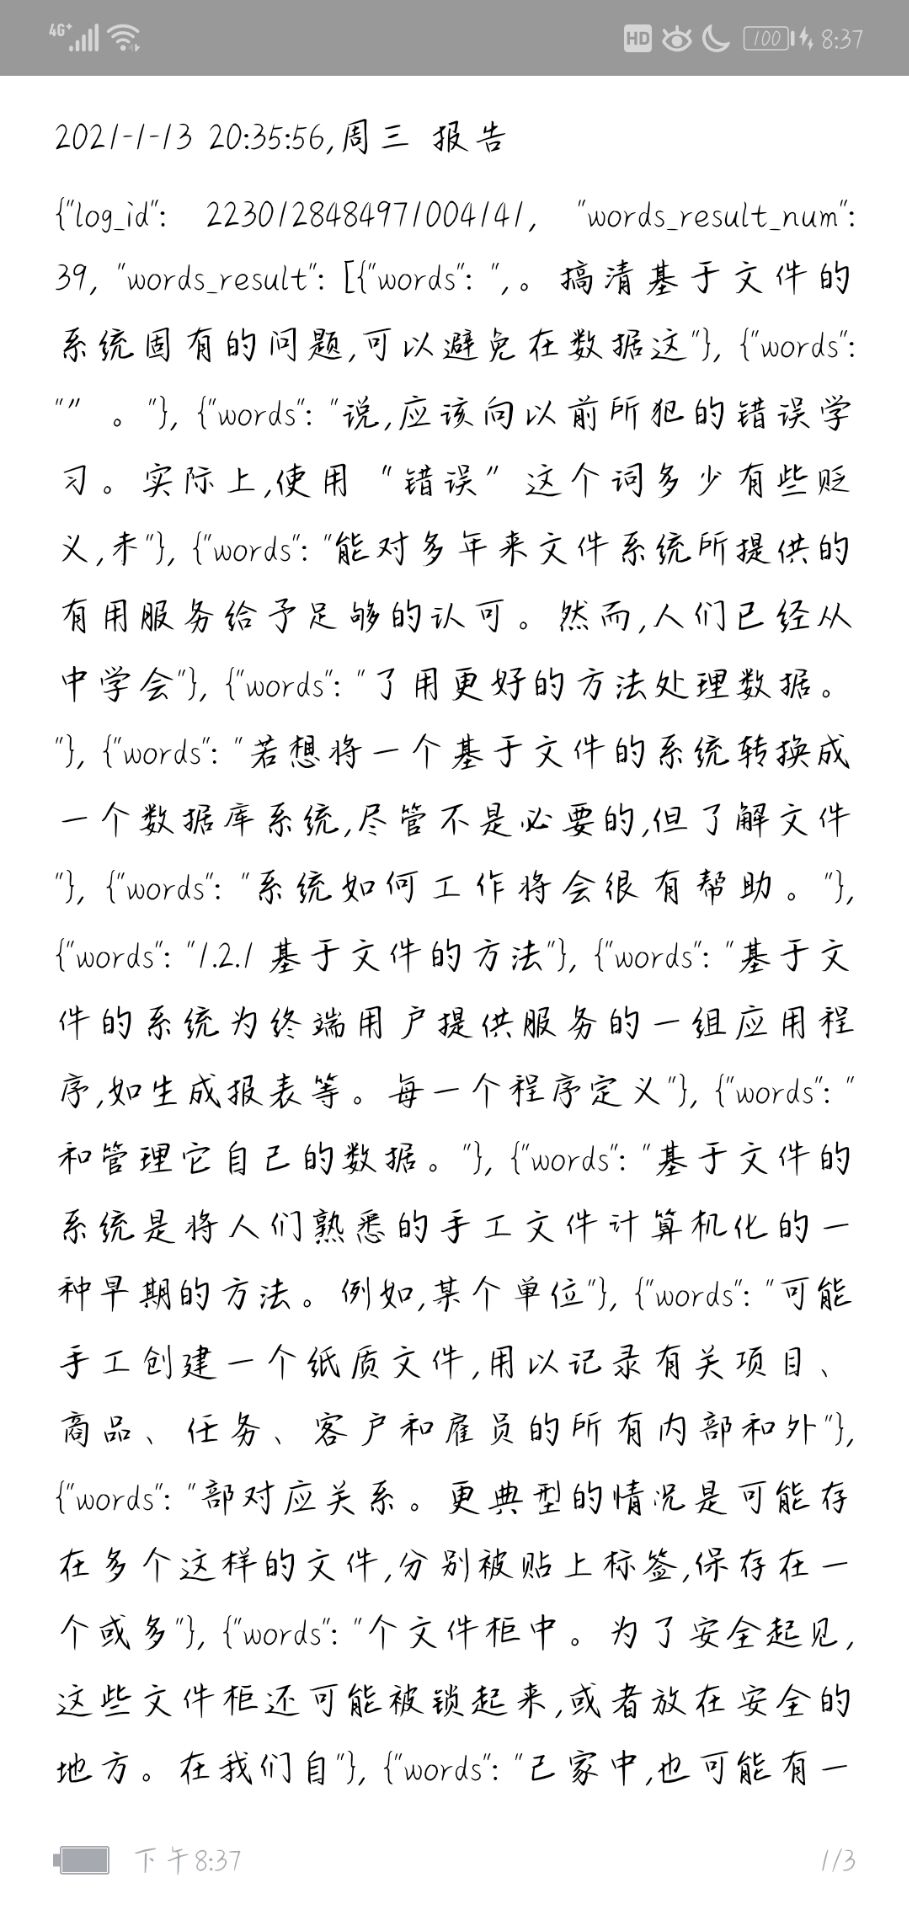 4G+ HD 100 8:37
2021-1-13 20:35:56,周三 报告
{"log_id": 2230128484971004141, "words_result_num":
39, "words_result": [{"words": ",。搞清基于文件的
系统固有的问题,可以避免在数据这"}, {"words":
"” 。"}, {"words": "说,应该向以前所犯的错误学
习。实际上,使用“错误”这个词多少有些贬
义,未"}, {"words": "能对多年来文件系统所提供的
有用服务给予足够的认可。然而,人们已经从
中学会"}, {"words": "了用更好的方法处理数据。
"}, {"words": "若想将一个基于文件的系统转换成
一个数据库系统,尽管不是必要的,但了解文件
"}, {"words": "系统如何工作将会很有帮助。"},
{"words": "1.2.1 基于文件的方法"}, {"words": "基于文
件的系统为终端用户提供服务的一组应用程
序,如生成报表等。每一个程序定义"}, {"words": "
和管理它自己的数据。"}, {"words": "基于文件的
系统是将人们熟悉的手工文件计算机化的一
种早期的方法。例如,某个单位"}, {"words": "可能
手工创建一个纸质文件,用以记录有关项目、
商品、任务、客户和雇员的所有内部和外"},
{"words": "部对应关系。更典型的情况是可能存
在多个这样的文件,分别被贴上标签,保存在一
个或多"}, {"words": "个文件柜中。为了安全起见,
这些文件柜还可能被锁起来,或者放在安全的
地方。在我们自"}, {"words": "己家中,也可能有一
下午8:37 1/3